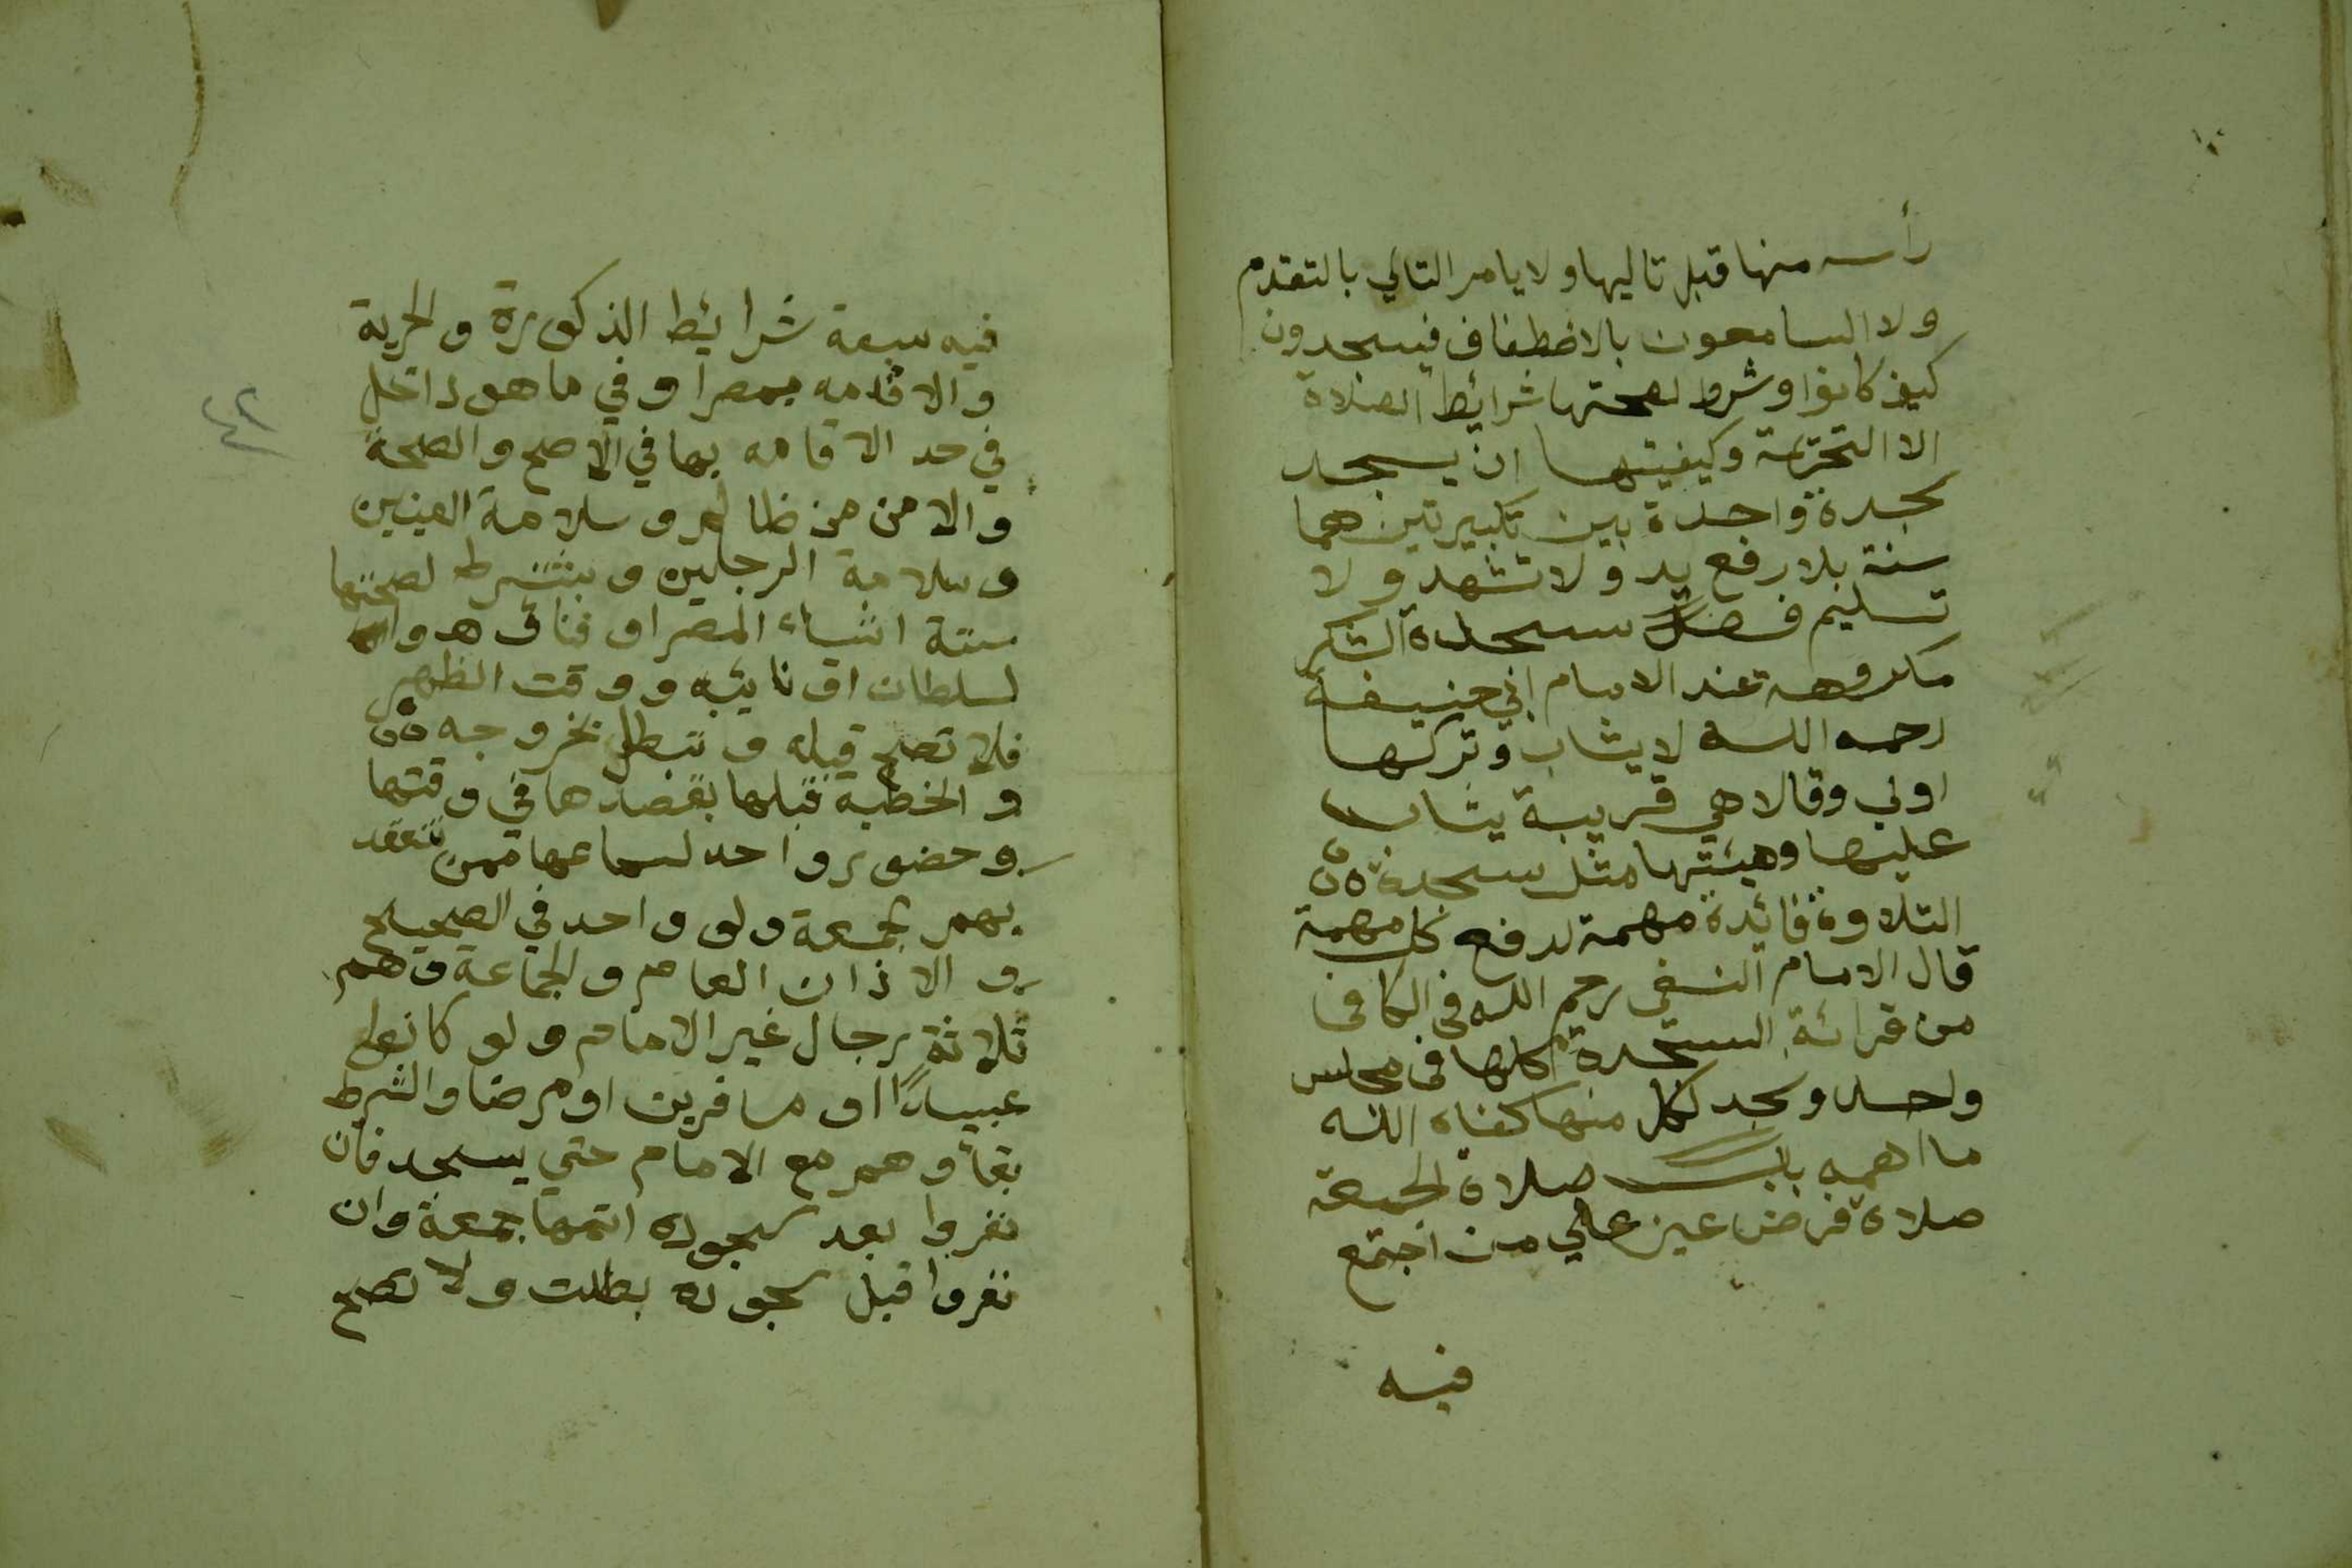 رأسه منها قبل تاليها ولا يامر التالي بالتقدم
ولا السامعون بالاضطفاف فيسجدون
كيف كانوا وشرط لصحتها شرائط الصلاة
الا التحريمة وكيفيتها ان يسجد
سجدة واحدة بين تكبيرتين هما
سنة بلا رفع يد ولا تشهد ولا
تسليم فصل سجدة الشكر
مكروهة عند الامام ابي حنيفة
رحمه الله لا يثاب وتركها
اولي وقالا هي قريبة يثاب
عليها وهيئتها مثل سجدة
التلاوة فائدة مهمة لدفع كل مهمة
قال الامام النسفي رحم الله في الكافي
من قرائة السجدة كلها في مجلس
واحد وسجد لكل منها كفاه الله
ما اهمه باب صلاة الجمعة
صلاة فرض عين علي من اجتمع
فيه
فيه سبعة شرائيط الذكورة والحرية
والاقامه بمصر او في ما هو داخل
في حد الاقامه بها في الاصح والصحة
والامن من ظالم وسلامة العينين
وسلامة الرجلين ويشترط لصحتها
ستة اشياء المصر او فناؤه وا
لسلطان او نائبه ووقت الظهر
فلا تصح قبله وتبطل بخروجه
والخطبة قبلها بقصدها في وقتها
وحضور واحد لسماعها ممن تنعقد
بهم جمعة ولو واحد في الصحيح
والاذان العام والجماعة وهم
ثلاثة رجال غير الامام ولو كانوا
عبيدا او مسافرين او مرضا والشرط
بقاؤهم مع الامام حتي يسجد فان
نفروا بعد سجوده اتمها جمعة وان
نفروا قبل سجوده بطلت ولا تصح
٤٢